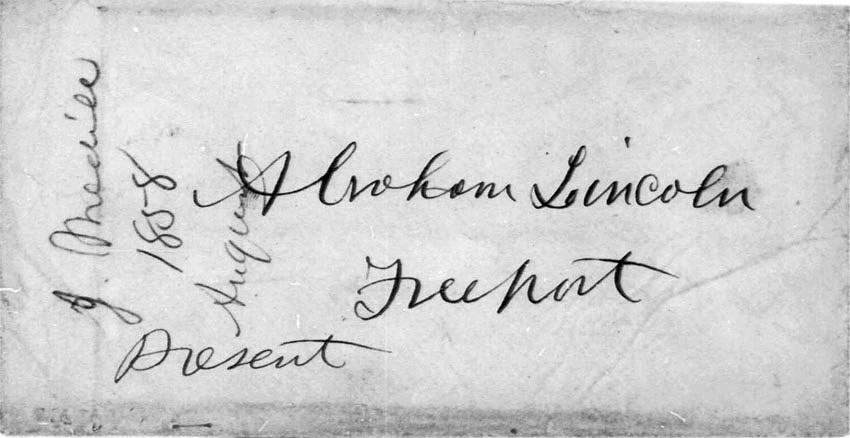 Abraham Lincoln
Freeport
Present
J. Medill
1858
August